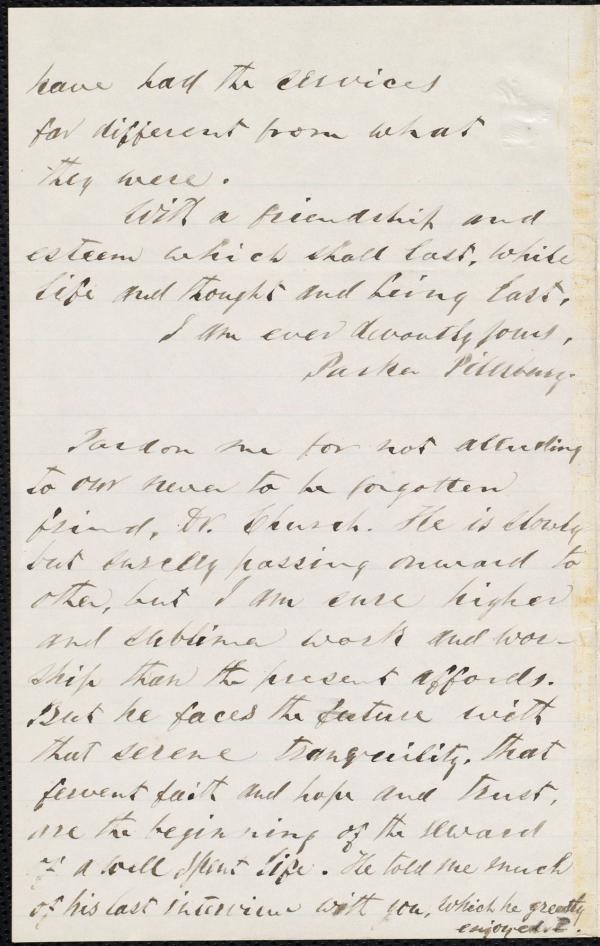 have had the services
far different from what
they were.
With a friendship and
esteem which shall last, while
life and thought and being last,
I am ever devoutly yours,
Parker Pillsbury.
Pardon me for not alluding
to our never to be forgotten
friend, Dr. Church. He is slowly
but surely passing onward to
other, but I am sure higher
and sublimer work and wor-
ship than the present affords.
But he faces the future with
that serene tranquility, that
fervent faith and hope and trust,
are the beginning of the reward
of a well spent life. He told me much
of his last interview with you, which he greatly
enjoyed. P.